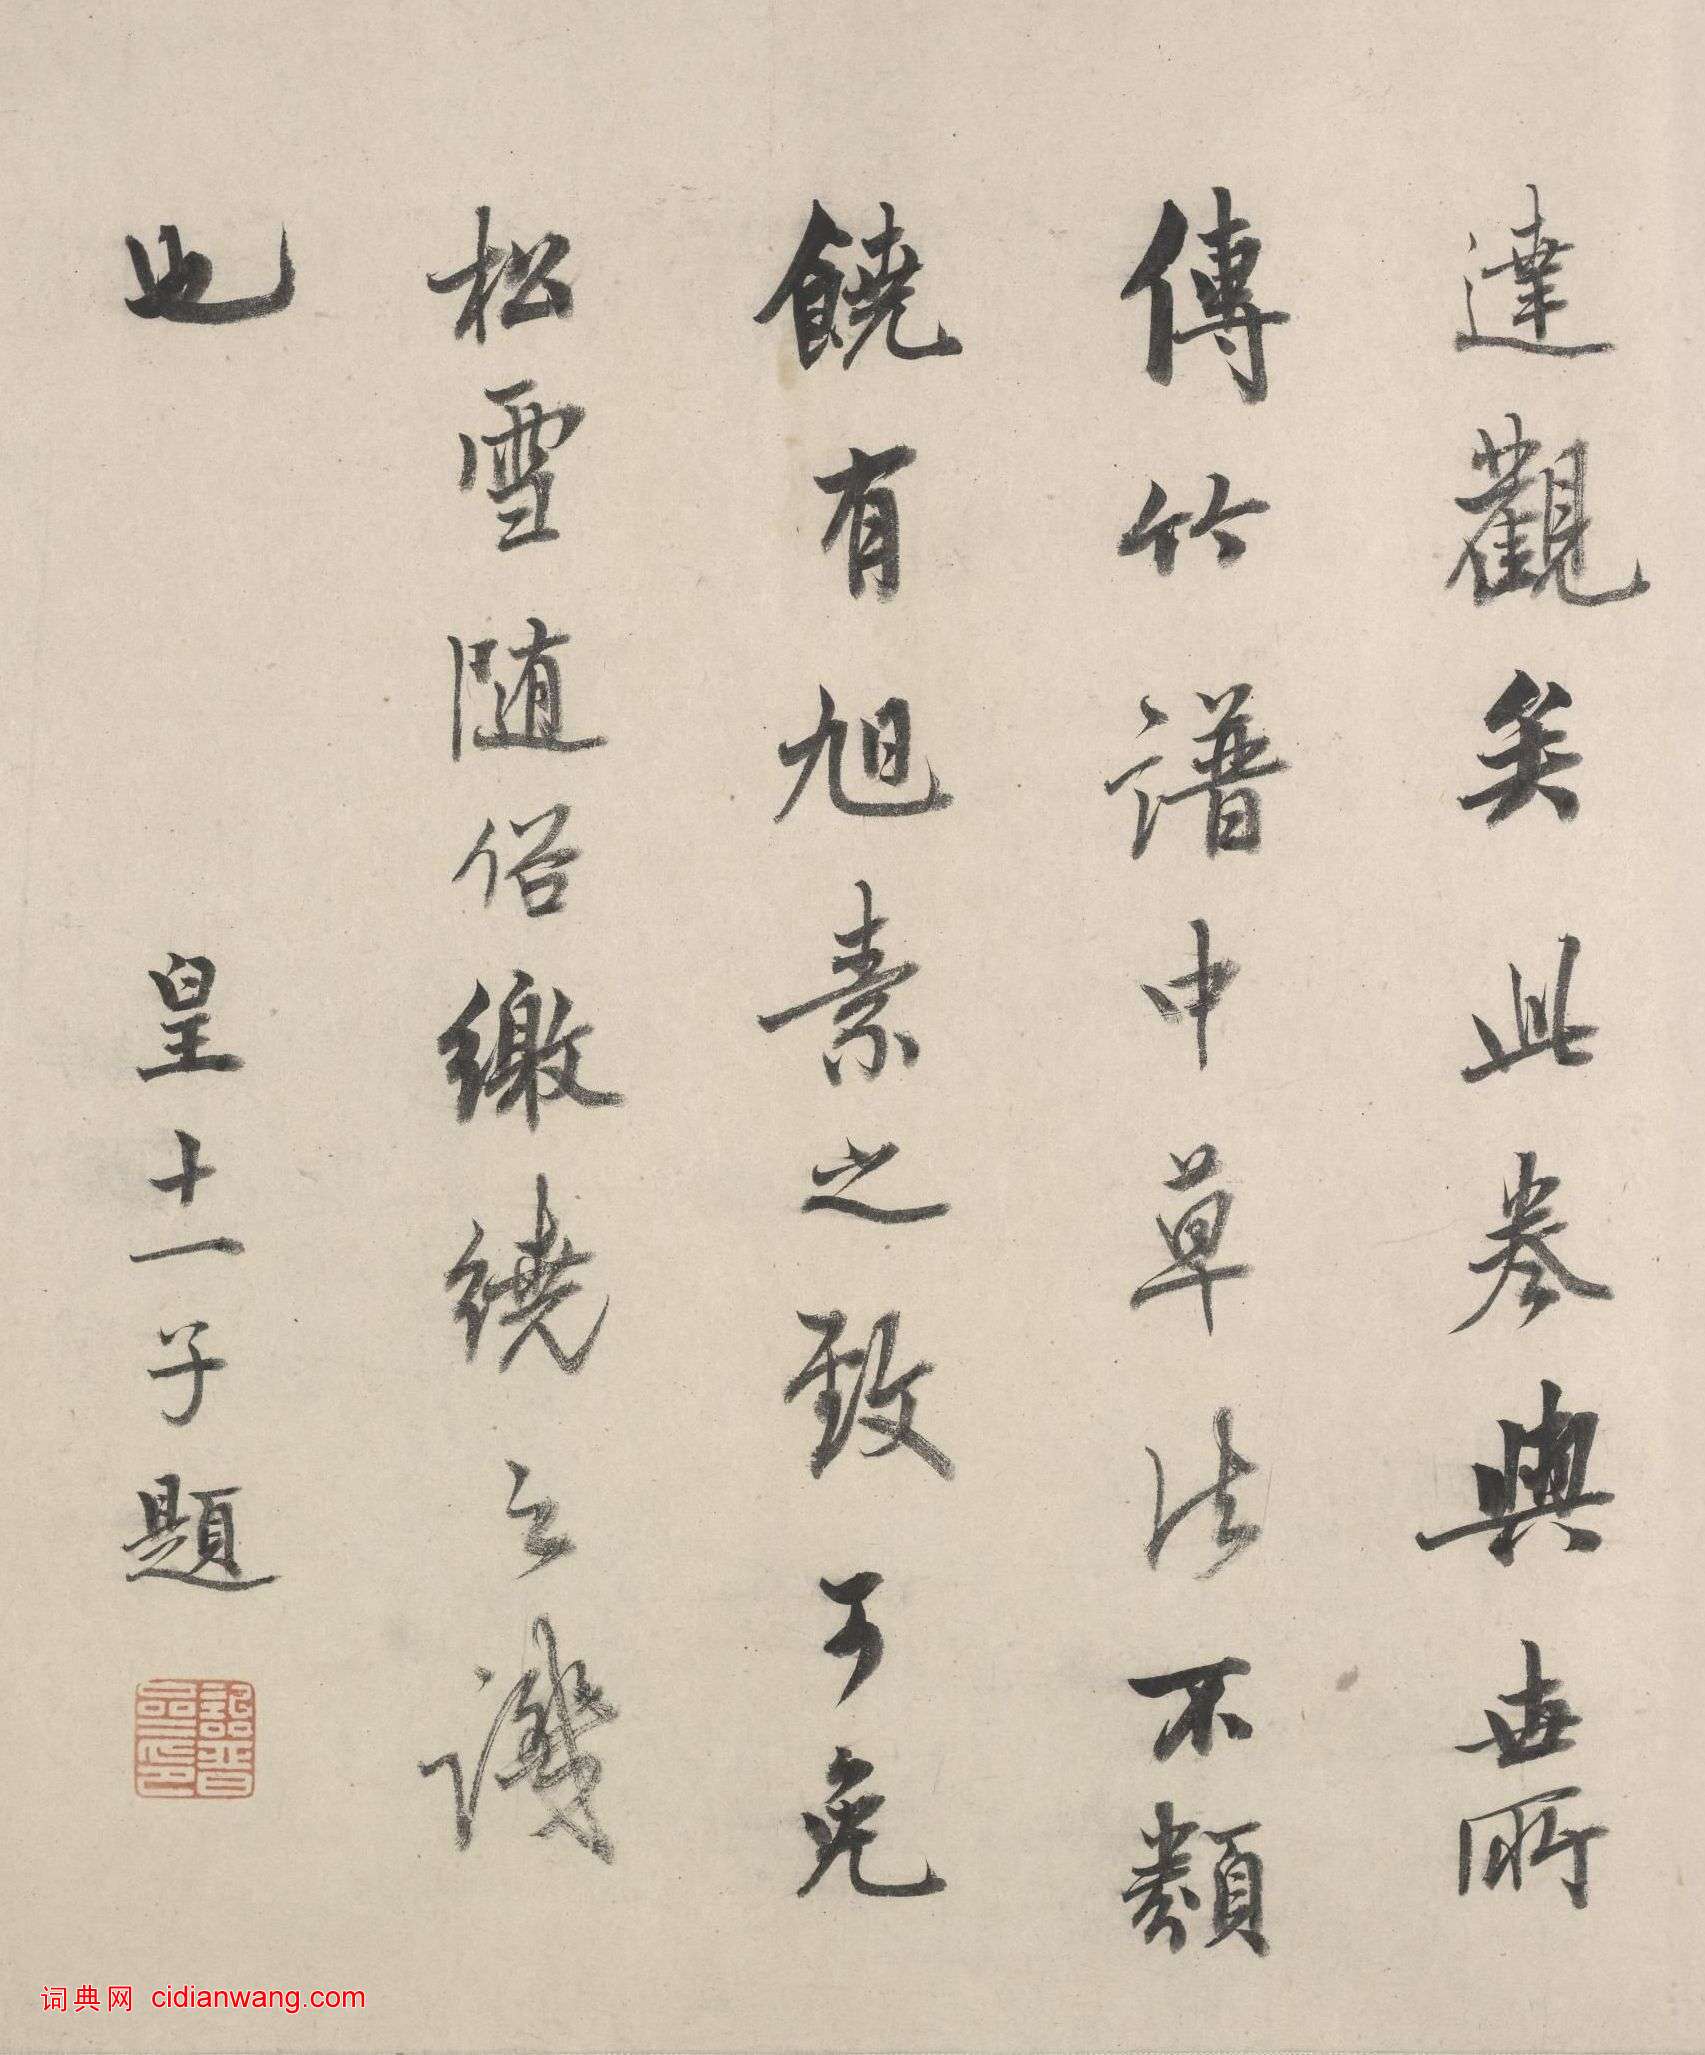 達觀矣此卷與世所
傳竹譜中草法不類
饒有旭素之致可免
松雪隨俗繳繞之譏
也
皇十一子題
词典网 cidianwang.com